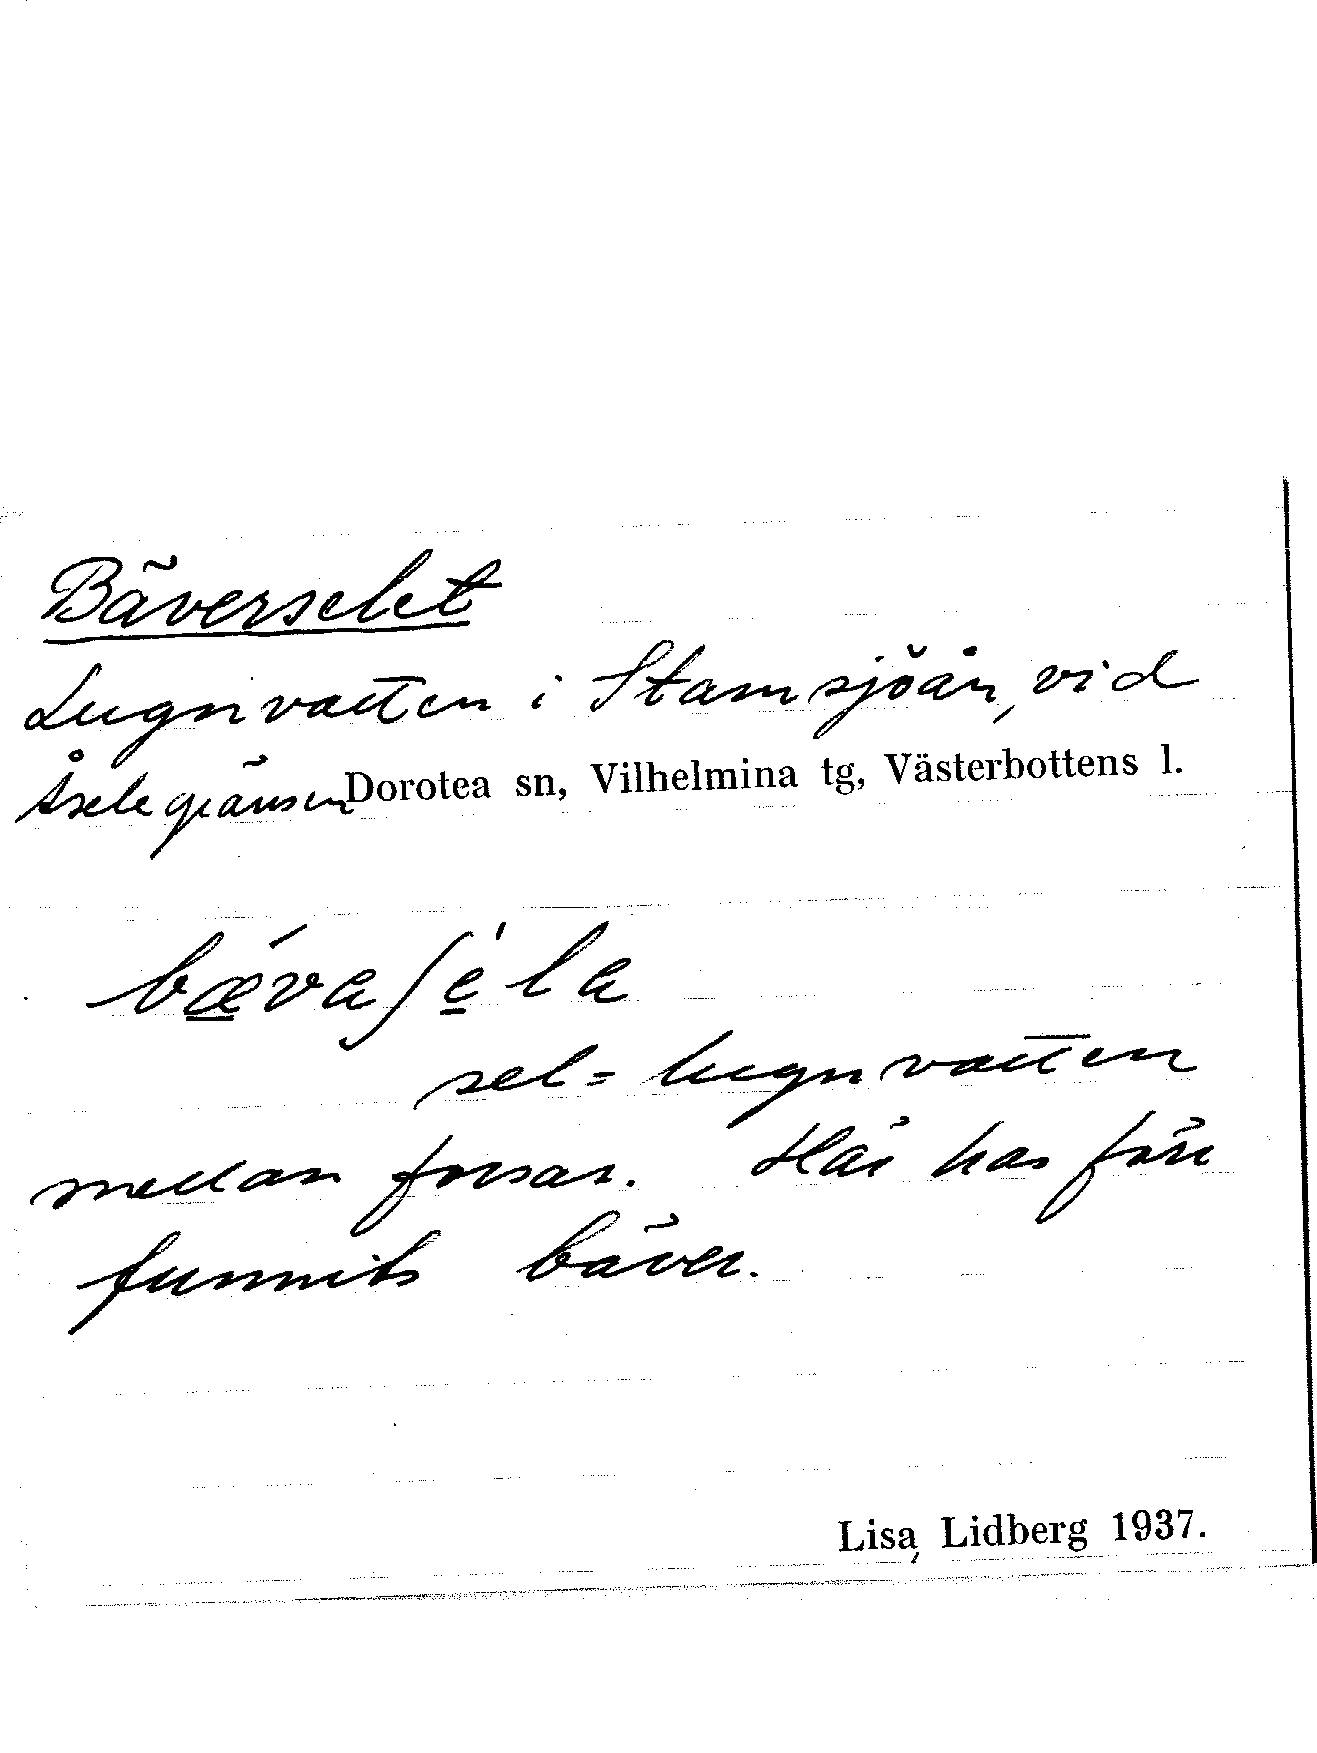 Bäverselet
Lugnvatten i Stamsjöån, vid
Åselegränsen Dorotea sn, Vilhelmina tg, Västerbottens l.
bǽ̲vaʃe̲̍la
sel = lugnvatten
mellan forsar. Här har förr
funnits bäver.
Lisa Lidberg 1937.